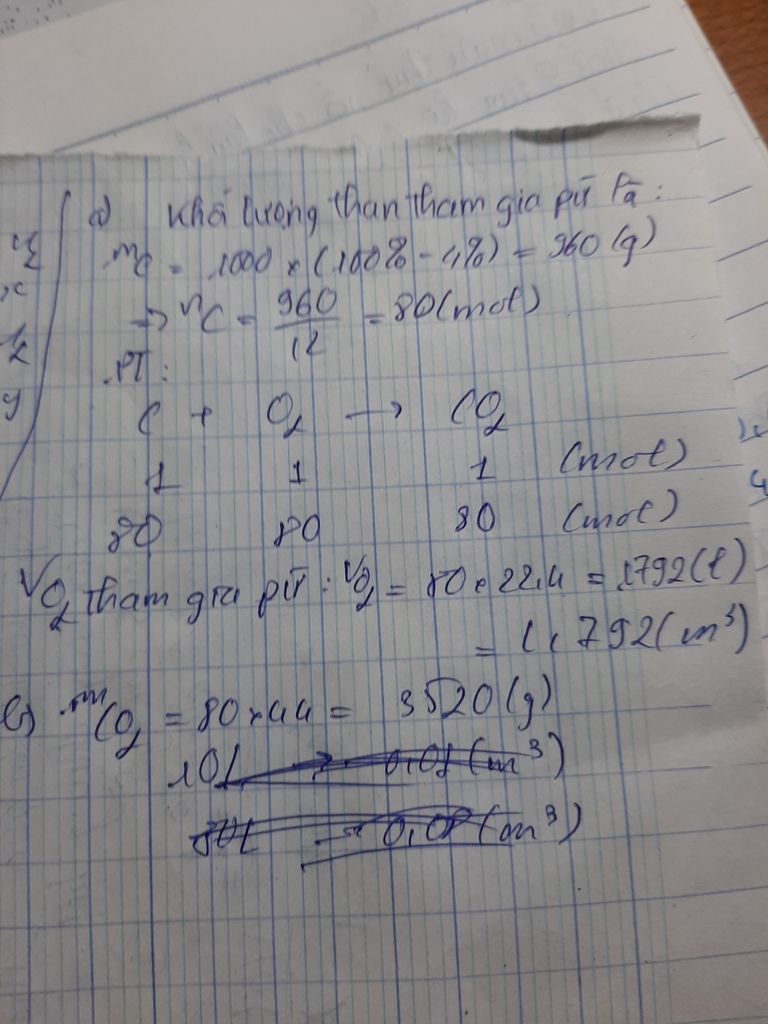 a) Khối lượng than tham gia pứ là:
mC = 1000 x (100% - 4%) = 960 (g)
-> nC = 960/12 = 80 (mol)
PT:
C + O2 -> CO2
1 1 1 (mol)
80 80 80 (mol)
VO2 tham gia pứ: VO2 = 80 . 22,4 = 1792 (l)
= 1,792 (m³)
b) mCO2 = 80 x 44 = 3520 (g)
10l -> 0,01 (m³)
80l -> 0,08 (m³)